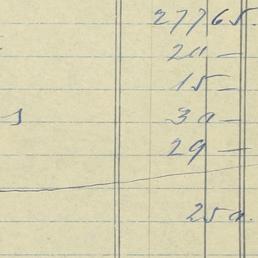 27765.
20 —
15 —
s 30 —
29 —
250.